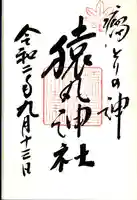 病とりの神
猿丸神社
令和二年九月十三日